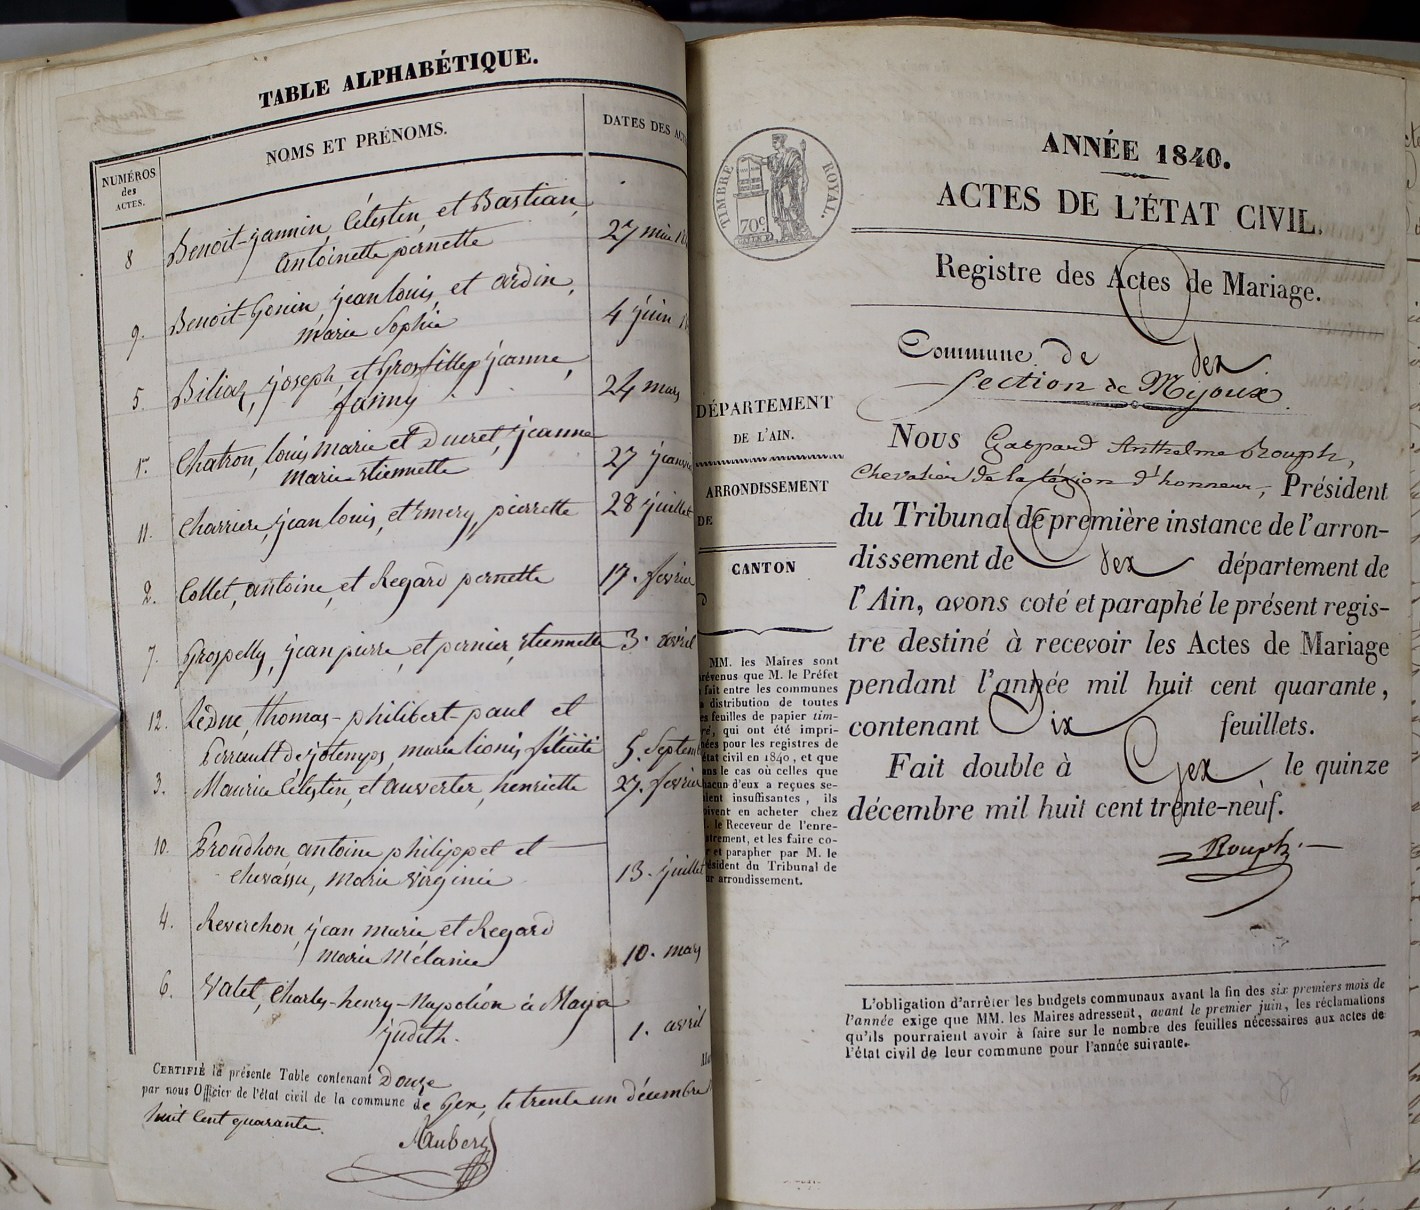 TABLE ALPHABÉTIQUE.
NUMÉROS
des
ACTES.
NOMS ET PRÉNOMS.
DATES DES
8 Benoit-Jannin, Célestin, et Bastian,
antoinette pernette
27 mai
9. Benoit-Genin, jean louis, et
marie Sophie
4 juin
5. joseph, et jeanne,
fanny
24 mars
1. Chatron, louis marie et Ducret, jeanne
marie étiennette
27
11. Charriere, jean louis, et Emery, pierrette
28 juillet
2. Collet, antoine, et Regard pernette
17. fevrier
7. Grospelly, jean pierre, et pernier, étiennette 3. avril
12. Léduc, thomas-philibert-paul et
Perrault de marie
5. Septem
3. Maurice Célestin, et henriette 27. fevrier
10. Proudhon, antoine philippe et
Chevassu, marie virginie
13. juillet
4. Reverchon, jean marie, et Regard
marie Mélanie
10. mars
6. Valet, Charles-henry-Napoléon à
judith.
1. avril
CERTIFIÉ la présente Table contenant Douze
par nous Officier de l'état civil de la commune de Gex, le trente un décembre
huit Cent quarante.
TIMBRE ROYAL.
70c
DÉPARTEMENT
DE L'AIN.
ARRONDISSEMENT
DE
CANTON
MM. les Maires sont
prévenus que M. le Préfet
fait entre les communes
distribution de toutes
feuilles de papier tim-
qui ont été impri-
mées pour les registres de
état civil en 1840, et que
dans le cas où celles que
chacun d'eux a reçues se-
raient insuffisantes, ils
doivent en acheter chez
le Receveur de l'enre-
gistrement, et les faire co-
ter et parapher par M. le
Président du Tribunal de
leur arrondissement.
ANNÉE 1840.
ACTES DE L'ÉTAT CIVIL.
Registre des Actes de Mariage.
Commune de Gex
Section de Mijoux.
NOUS Gaspard Anthelme Rouph,
Chevalier de la légion d'honneur, Président
du Tribunal de première instance de l'arron-
dissement de Gex département de
l'Ain, avons coté et paraphé le présent regis-
tre destiné à recevoir les Actes de Mariage
pendant l'année mil huit cent quarante,
contenant Dix feuillets.
Fait double à Gex, le quinze
décembre mil huit cent trente-neuf.
Rouph.
L'obligation d'arrêter les budgets communaux avant la fin des six premiers mois de
l'année exige que MM. les Maires adressent, avant le premier juin, les réclamations
qu'ils pourraient avoir à faire sur le nombre des feuilles nécessaires aux actes de
l'état civil de leur commune pour l'année suivante.